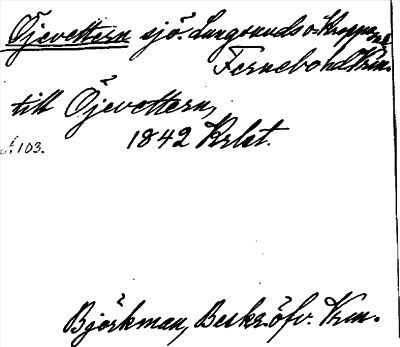 Öjevettern sjö. Lungsunds o. Kroppa snr
Fernebo hd Vrm.
till Öjevettern,
1842 Krlet.
s. 103.
Björkman, Beskr. öfv. Vrm.